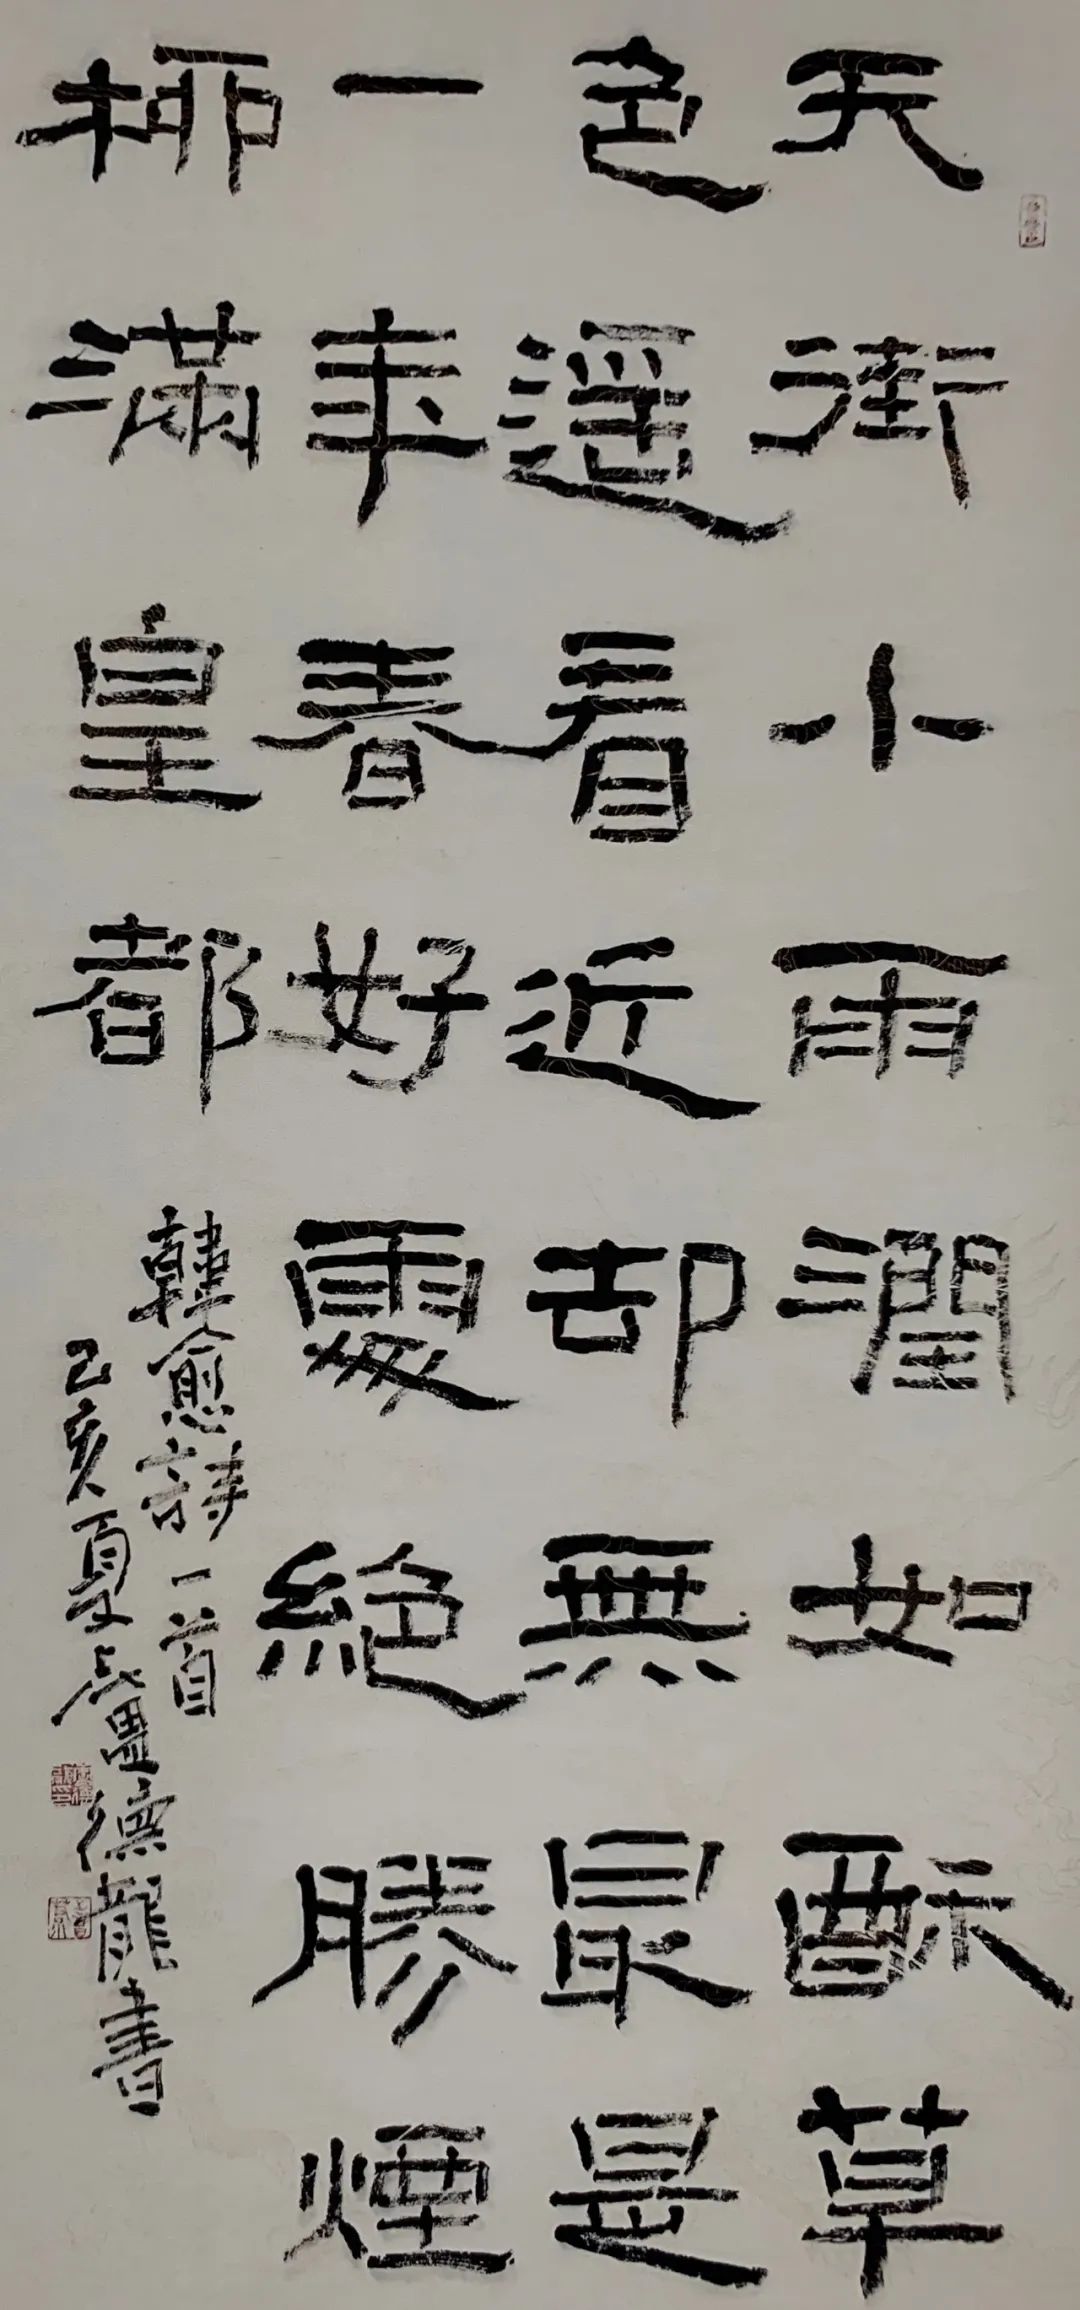 天街小雨潤如酥草
色遥看近却無最是
一年春好處絕勝煙
柳滿皇都
韓愈詩一首
己亥夏 德龍書